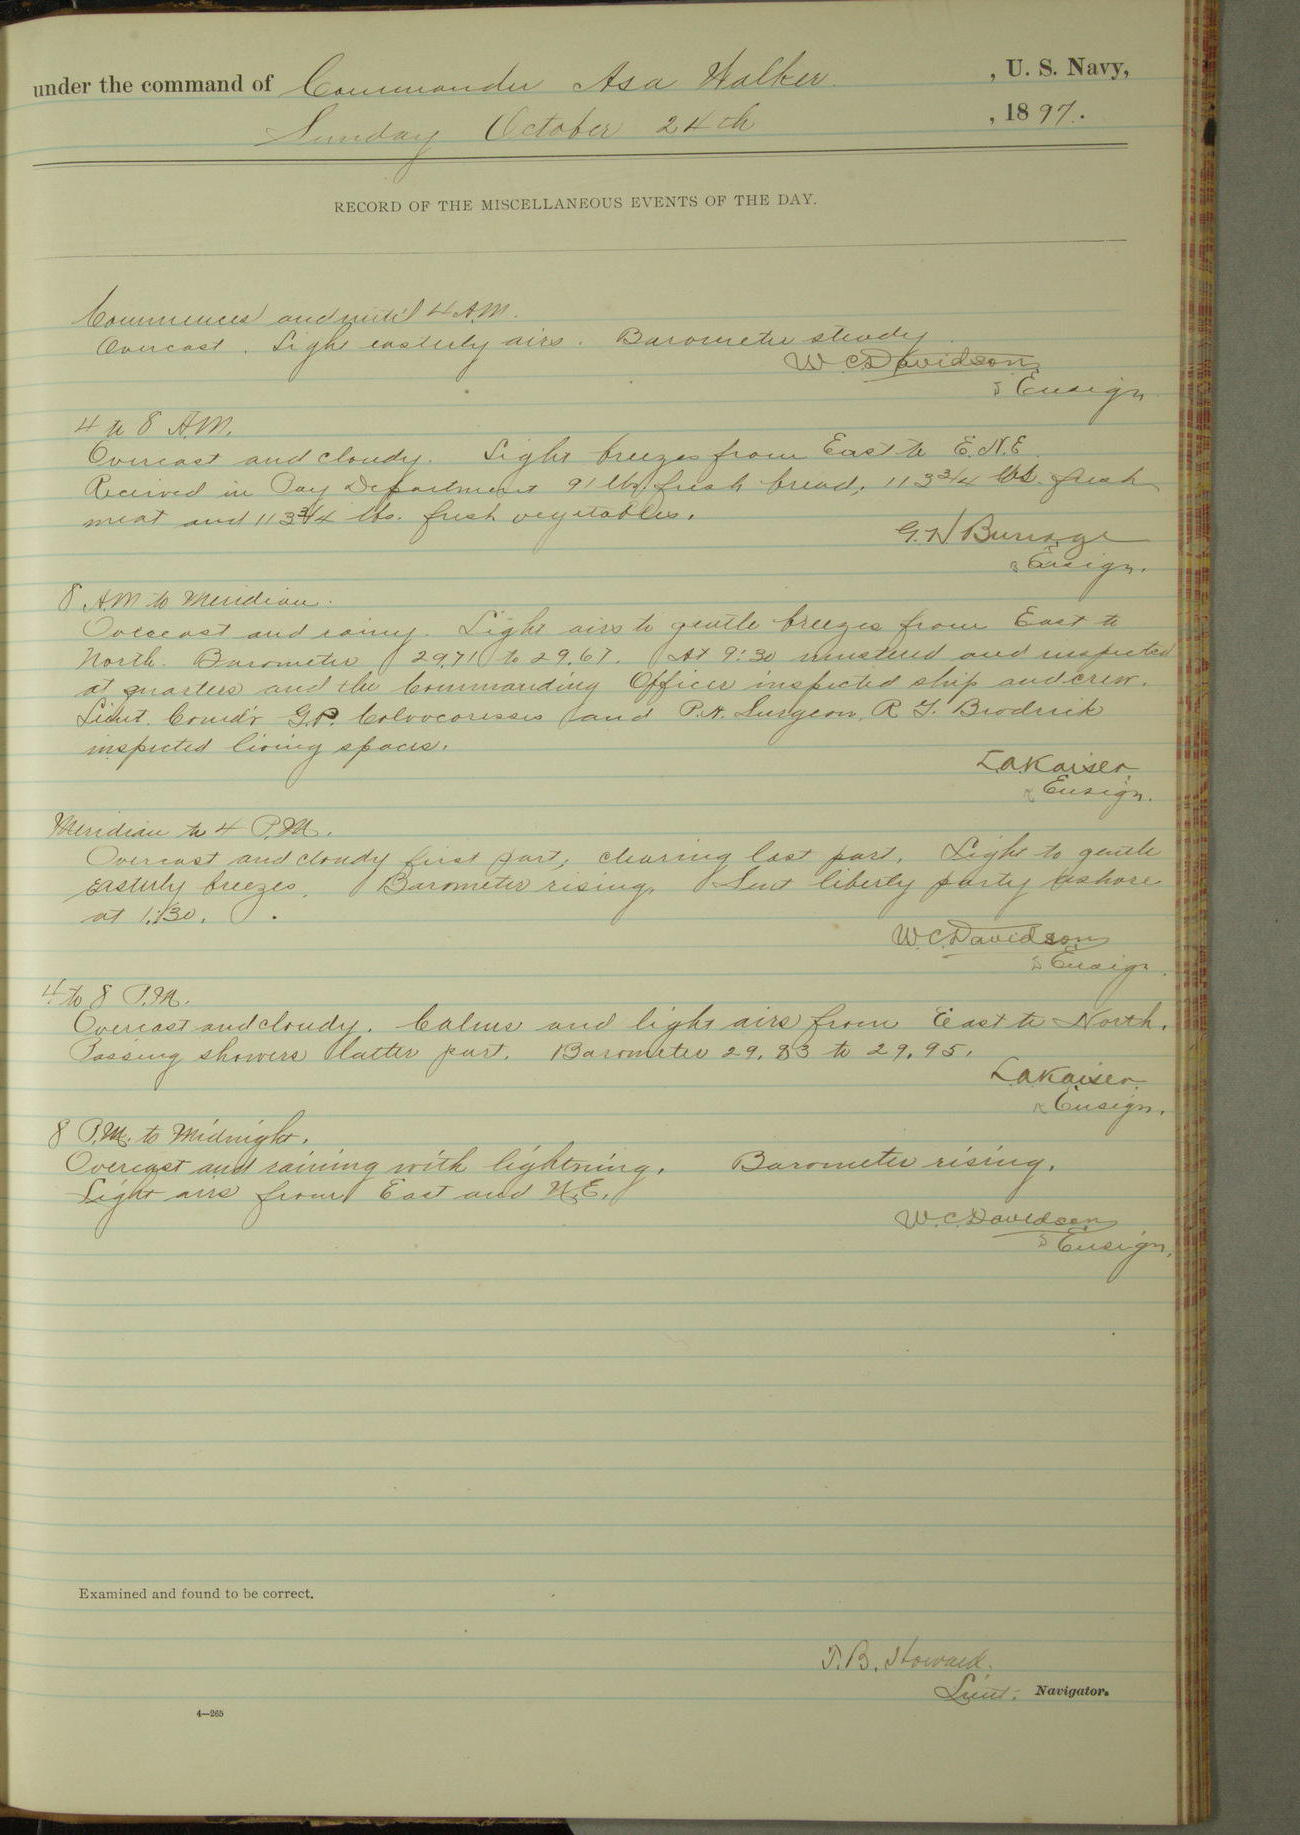 under the command of Commander Asa Walker. , U. S. Navy,
Sunday October 24th , 1897.
RECORD OF THE MISCELLANEOUS EVENTS OF THE DAY.
Commences and until 4 A.M.
Overcast. Light easterly airs. Barometer steady.
W. C. Davidson
Ensign
4 to 8 A.M.
Overcast and cloudy. Light breezes from East to E.N.E.
Received in Pay Department 91 lbs fresh bread, 113 3/4 lbs. fresh
meat and 113 3/4 lbs. fresh vegetables.
G. H. Burrage
Ensign.
8 A.M to Meridian.
Overcast and rainy. Light airs to gentle breezes from East to
North. Barometer 29.71 to 29.67. At 9:30 mustered and inspected
at quarters and the Commanding Officer inspected ship and crew.
Lieut. Comd'r G.P. Colvocoresses and P.A. Surgeon, R. G. Brodrick
inspected living spaces.
L.A. Kaiser,
Ensign.
Meridian to 4 P.M.
Overcast and cloudy first part, clearing last part. Light to gentle
easterly breezes. Barometer rising. Sent liberty party ashore
at 1:30.
W. C. Davidson
Ensign.
4 to 8 P.M.
Overcast and cloudy. Calms and light airs from East to North.
Passing showers latter part. Barometer 29.83 to 29.95.
L.A. Kaiser,
Ensign.
8 P.M. to Midnight.
Overcast and raining with lightning. Barometer rising.
Light airs from East and N.E.
W. C. Davidson
Ensign.
Examined and found to be correct.
T. B. Howard.
Lieut. Navigator.
4—265